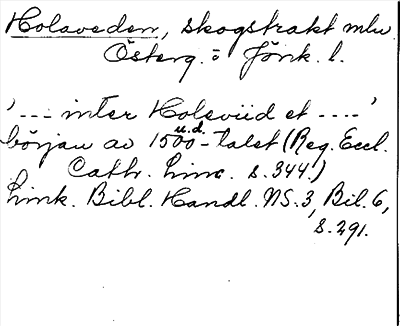 Holaveden, skogstrakt mlw
Österg. o Jönk. l.
'--- inter Holeviid et ----'
början av 1500-talet (Reg. Eccl.
u.d.
Cath. Linc. s. 344.)
Link. Bibl. Handl. NS. 3, Bil. 6,
s. 291.